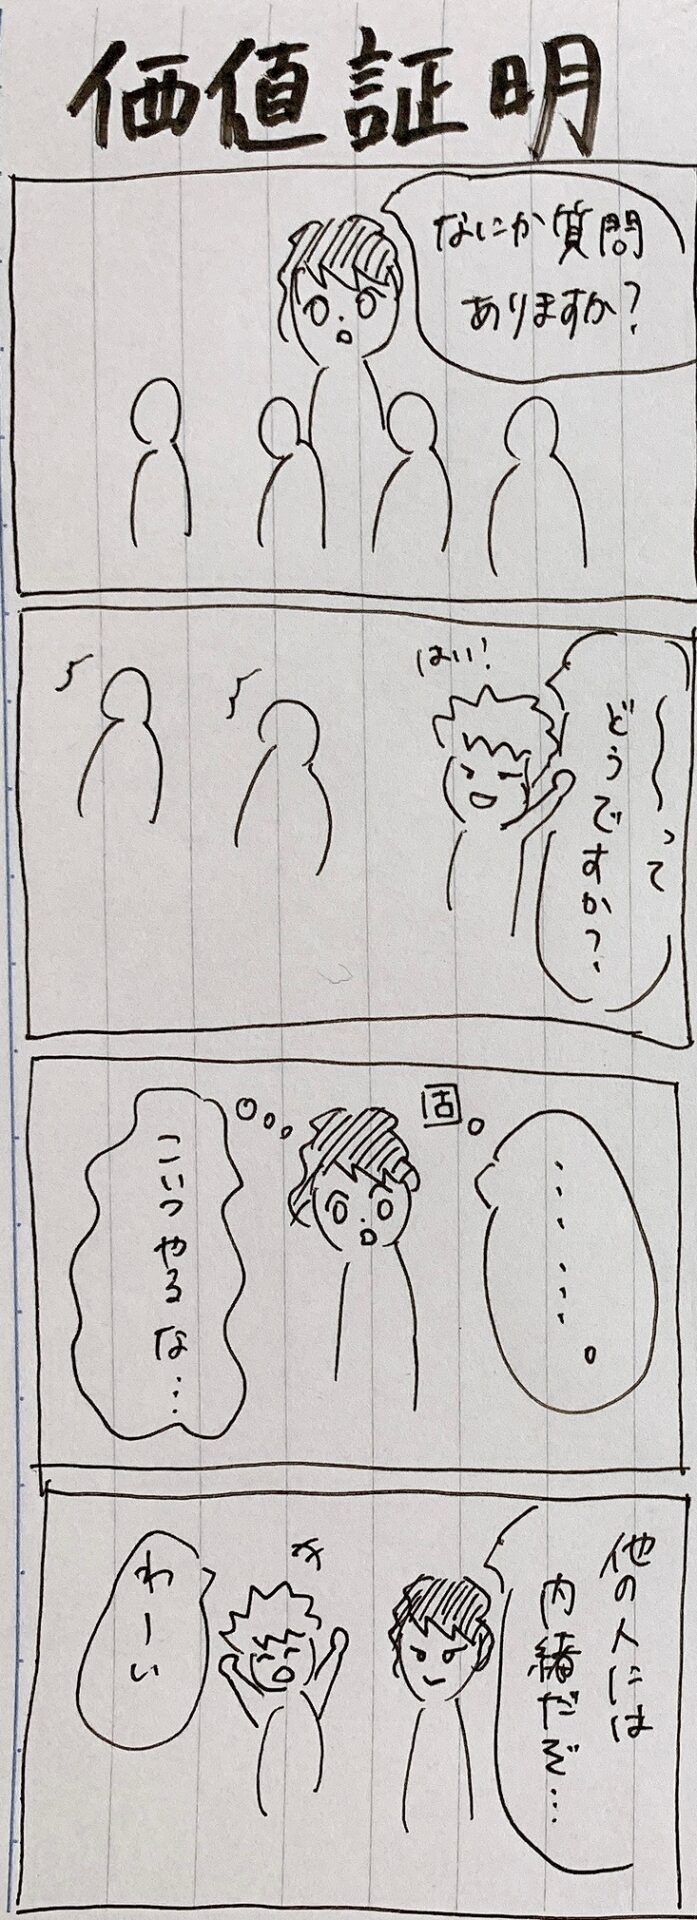 価値証明
なにか質問
ありますか？
はい！
〜〜って
どうですか？
固
・・・・・・。
こいつやるな…
他の人には
内緒だぞ…
わーい